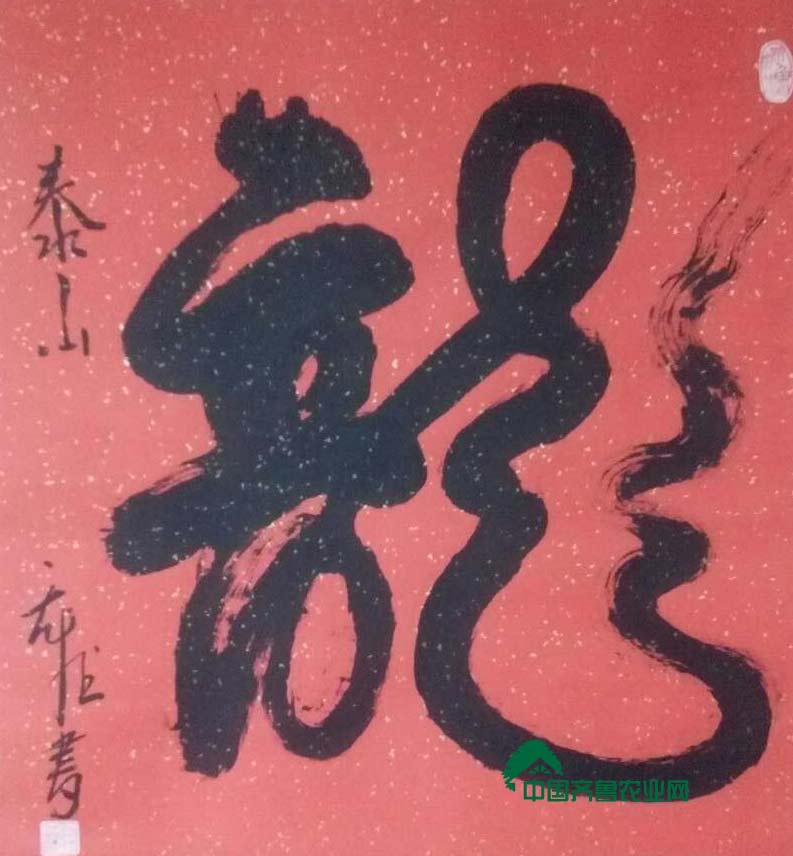 龍
泰山
书
中国齐鲁农业网